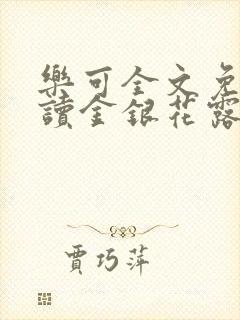 樂可全文免
讀金銀花露
賈巧萍